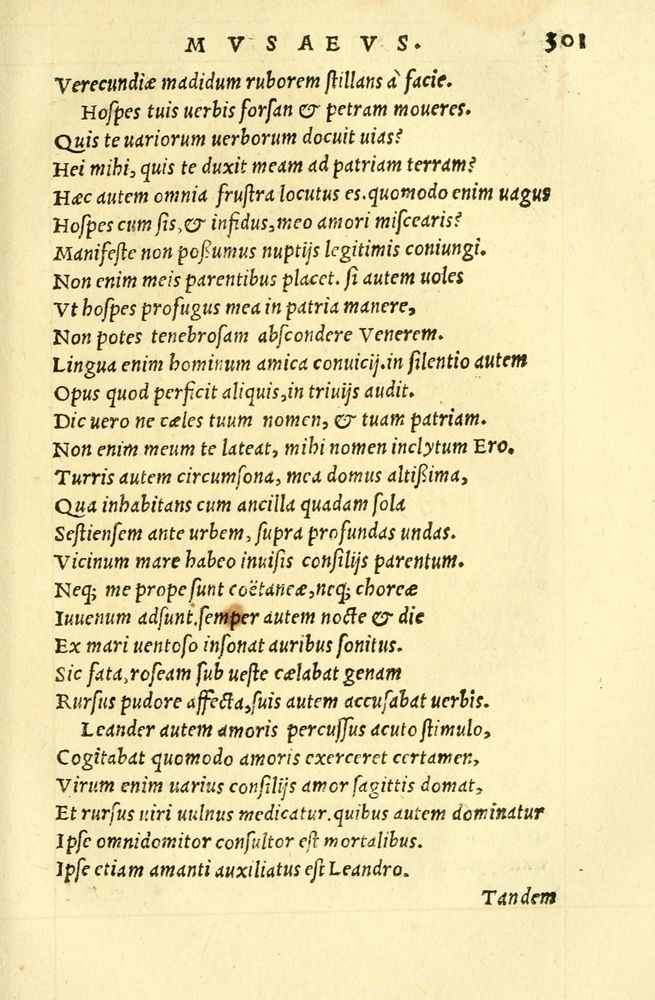 MVSAEVS. 301
Verecundiæ madidum ruborem ſtillans à facie.
Hoſpes tuis uerbis forſan & petram moueres.
Quis te uariorum uerborum docuit uias?
Hei mihi, quis te duxit meam ad patriam terram?
Hæc autem omnia fruſtra locutus es. quomodo enim uagus
Hoſpes cum ſis, & infidus, meo amori miſcearis?
Manifeſte non poßumus nuptijs legitimis coniungi.
Non enim meis parentibus placet. ſi autem uoles
Vt hoſpes profugus mea in patria manere,
Non potes tenebroſam abſcondere Venerem.
Lingua enim hominum amica conuicij. in ſilentio autem
Opus quod perficit aliquis, in triuijs audit.
Dic uero ne cæles tuum nomen, & tuam patriam.
Non enim meum te lateat, mihi nomen inclytum Ero.
Turris autem circumſona, mea domus altißima,
Qua inhabitans cum ancilla quadam ſola
Seſtienſem ante urbem, ſupra profundas undas.
Vicinum mare habeo inuiſis conſilijs parentum.
Neq; me prope ſunt coëtaneæ, neq; choreæ
Iuuenum adſunt. ſemper autem nocte & die
Ex mari uentoſo inſonat auribus ſonitus.
Sic fata, roſeam ſub ueſte cælabat genam
Rurſus pudore affecta, ſuis autem accuſabat uerbis.
Leander autem amoris percuſſus acuto ſtimulo,
Cogitabat quomodo amoris exerceret certamen,
Virum enim uarius conſilijs amor ſagittis domat,
Et rurſus uiri uulnus medicatur. quibus autem dominatur
Ipſe omnidomitor conſultor eſt mortalibus.
Ipſe etiam amanti auxiliatus eſt Leandro.
Tandem